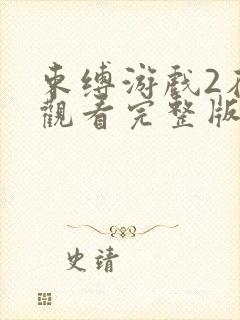 束缚游戏2在
觀看完整版
史靖